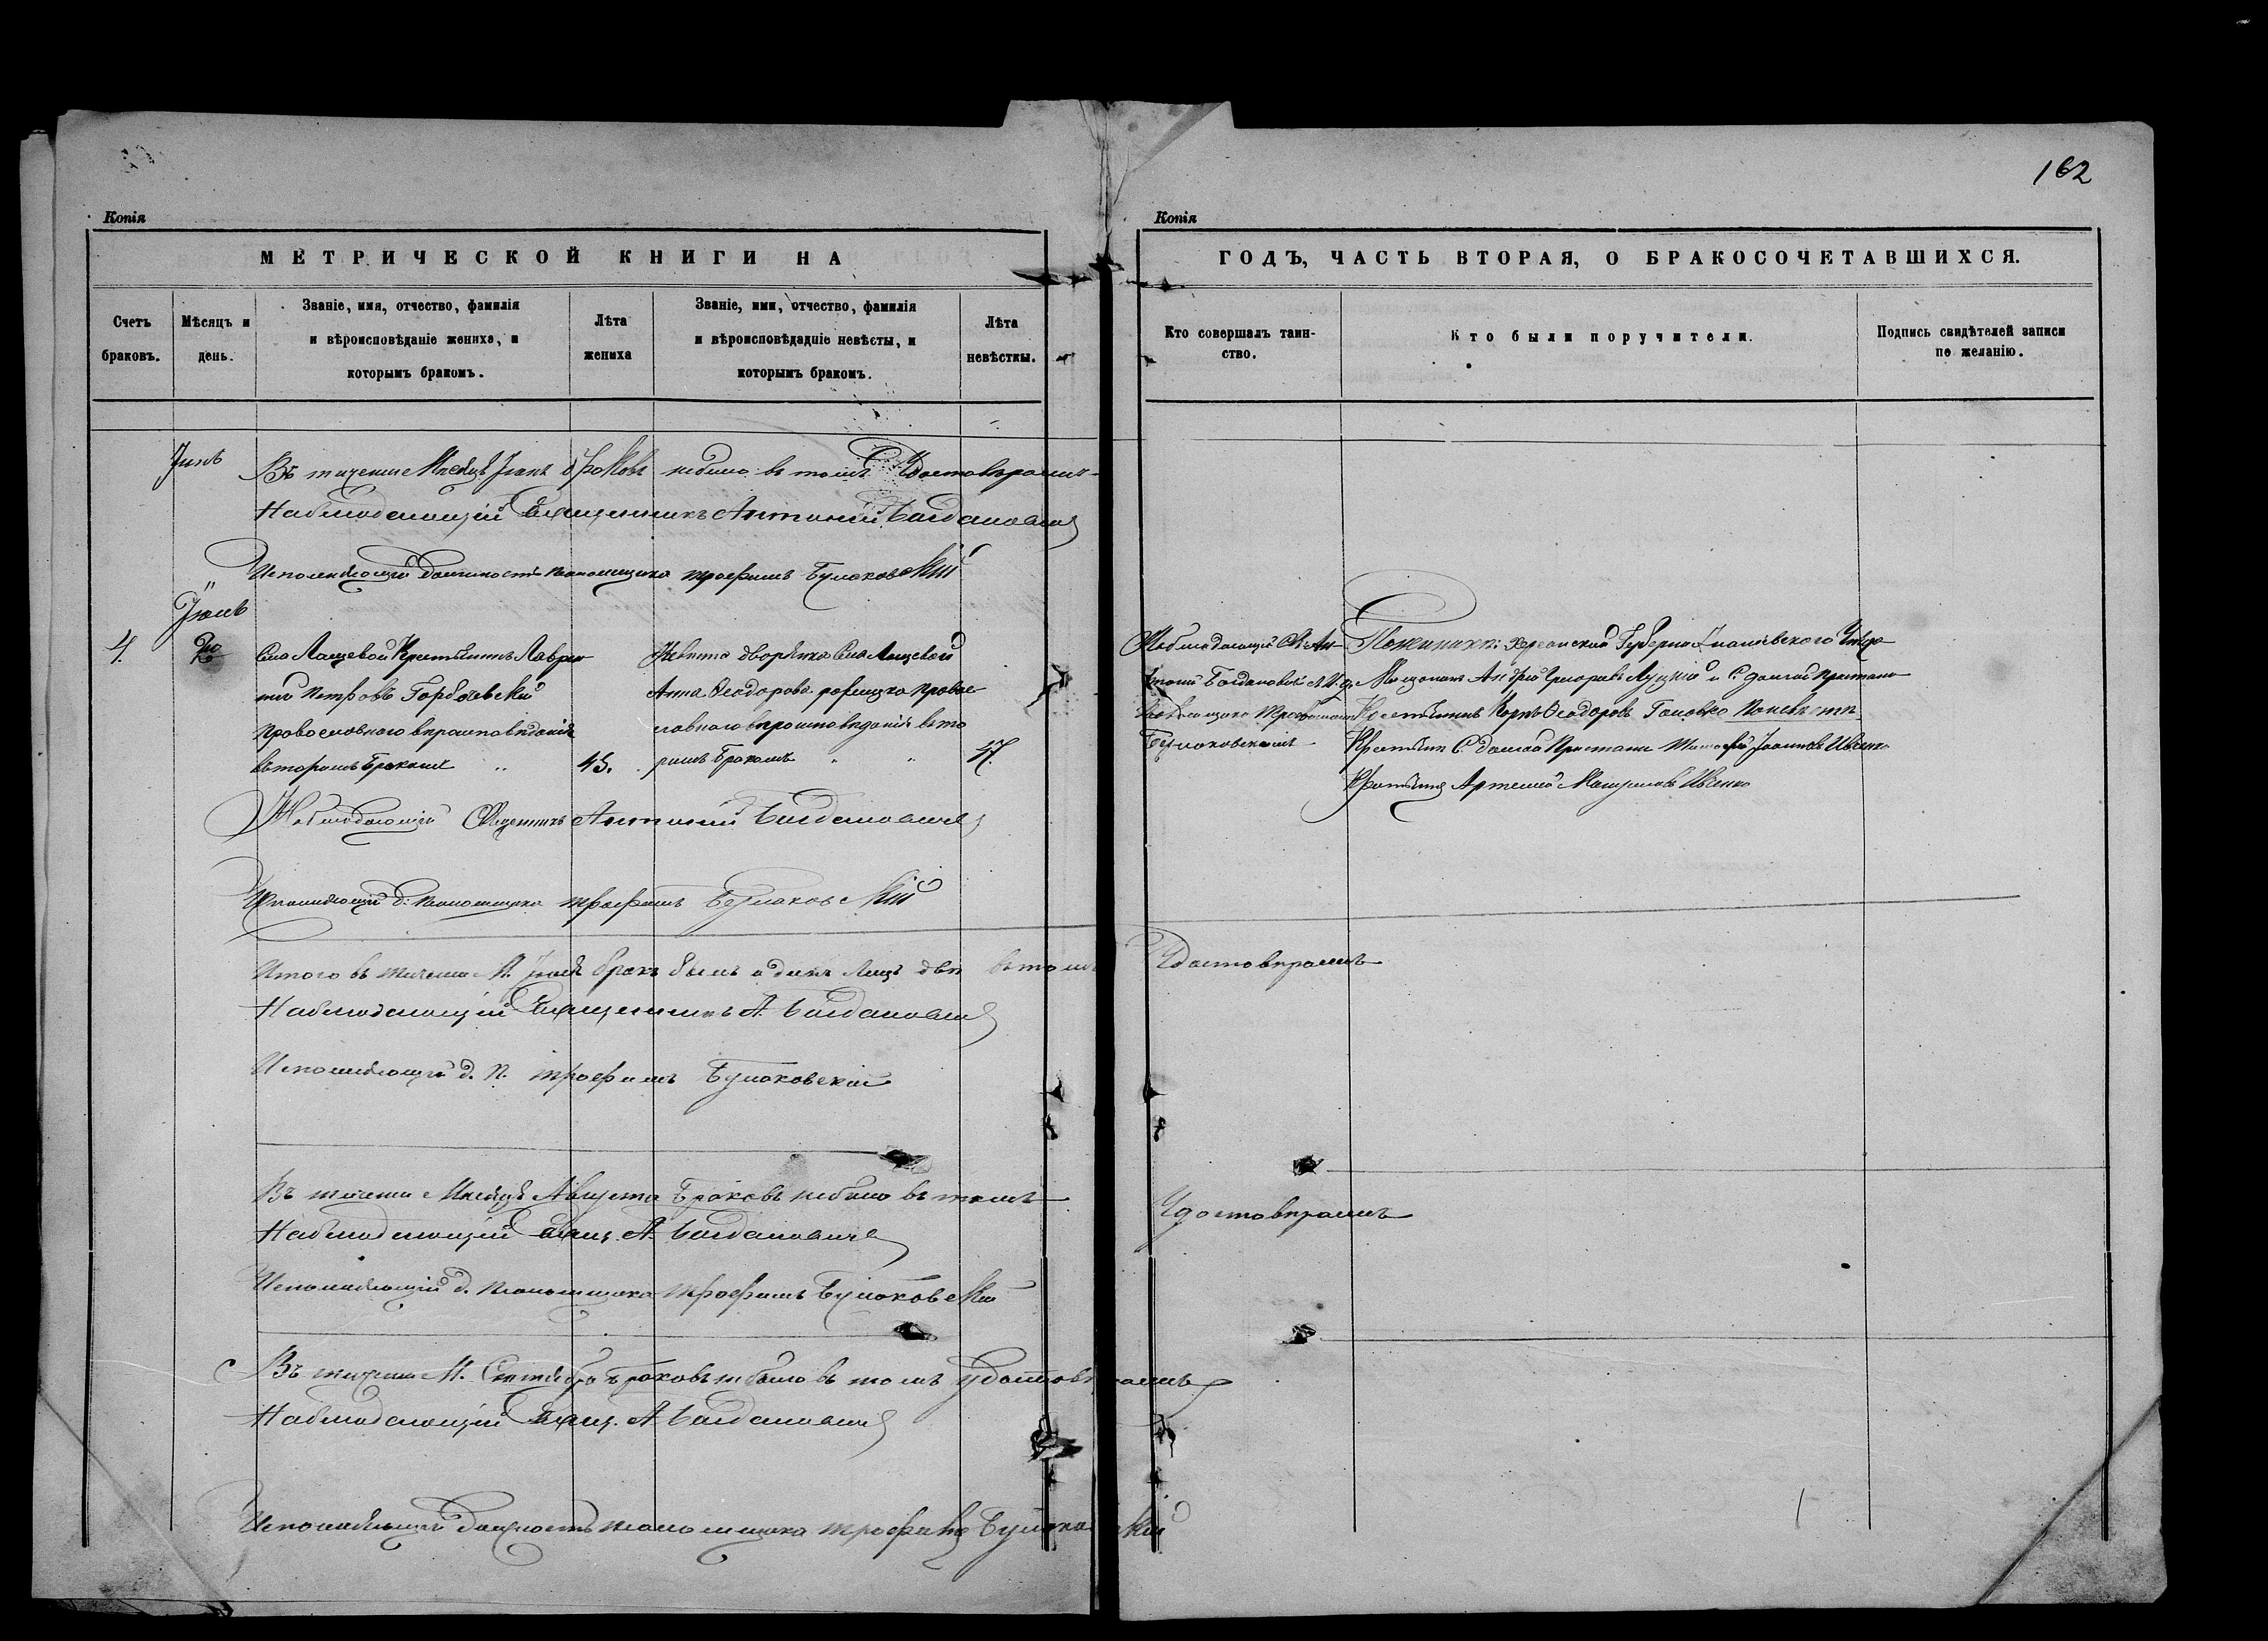 162
Копія
МЕТРИЧЕСКОЙ КНИГИ НА
Счетъ браковъ.
Мѣсяцъ и день.
Званіе, имя, отчество, фамилія и вѣроисповѣданіе жениха, и которымъ бракомъ.
Лѣта жениха
Званіе, имя, отчество, фамилія и вѣроисповѣдадніе невѣсты, и которымъ бракомъ.
Лѣта невѣсткы.
Іюнь
Въ теченіе Месяца Іюня браковъ небыло въ томъ Удостовѣряемъ
Наблюдающій Священникъ Антоній Богдановичъ
Исполняющій должность Псаломщика Трофимъ Булаковскій
Іюль
4.
Села Лащевой Крестьянинъ Лаврен
тій Петровъ Горбачевскій
Православного вѣроисповѣданія
вторымъ бракомъ
45.
Невѣста дворянка Села Лащевой
Анна Ѳеодорова
славного вѣроисповѣданія вто
рымъ бракомъ
47.
Наблюдающій Священникъ Антоній Богдановичъ
Исполняющій д. Псаломщика Трофимъ Булаковскій
Итого въ теченіе М. Іюля бракъ былъ одинъ лицъ двѣ въ томъ
Наблюдающій Священникъ А. Богдановичъ
Исполняющій д. П. Трофимъ Булаковскій
Въ теченіе Месяца Августа браковъ небыло въ томъ
Наблюдающій Свящ. А. Богдановичъ
Исполняющій д. Псаломщика Трофимъ Булаковскій
Въ теченіе М. Сентября браковъ небыло въ томъ удостовѣряемъ
Наблюдающій Свящ. А. Богдановичъ
Исполняющій должность псаломщика Трофимъ Булаковскій
Копія
ГОДЪ, ЧАСТЬ ВТОРАЯ, О БРАКОСОЧЕТАВШИХСЯ.
Кто совершалъ таин-ство.
Кто были поручители.
Подпись свидѣтелей записи по желанію.
Наблюдающій Св. Ан-
тоній Богдановичъ
Псаломщика Трофимомъ
Булаковскимъ
По женихѣ: Херсонской Губерніи Ананьевского Уѣзда
Мещанинъ Андрей Григорьевъ Луцкій и С. долгой Пристани
Крестьянинъ Карпъ Ѳеодоровъ Головко По невѣстѣ
Крестьян. С. долгой Пристани Іоанновъ Ивченко
Артемій Ивченко
Удостовѣряемъ
Удостовѣряемъ